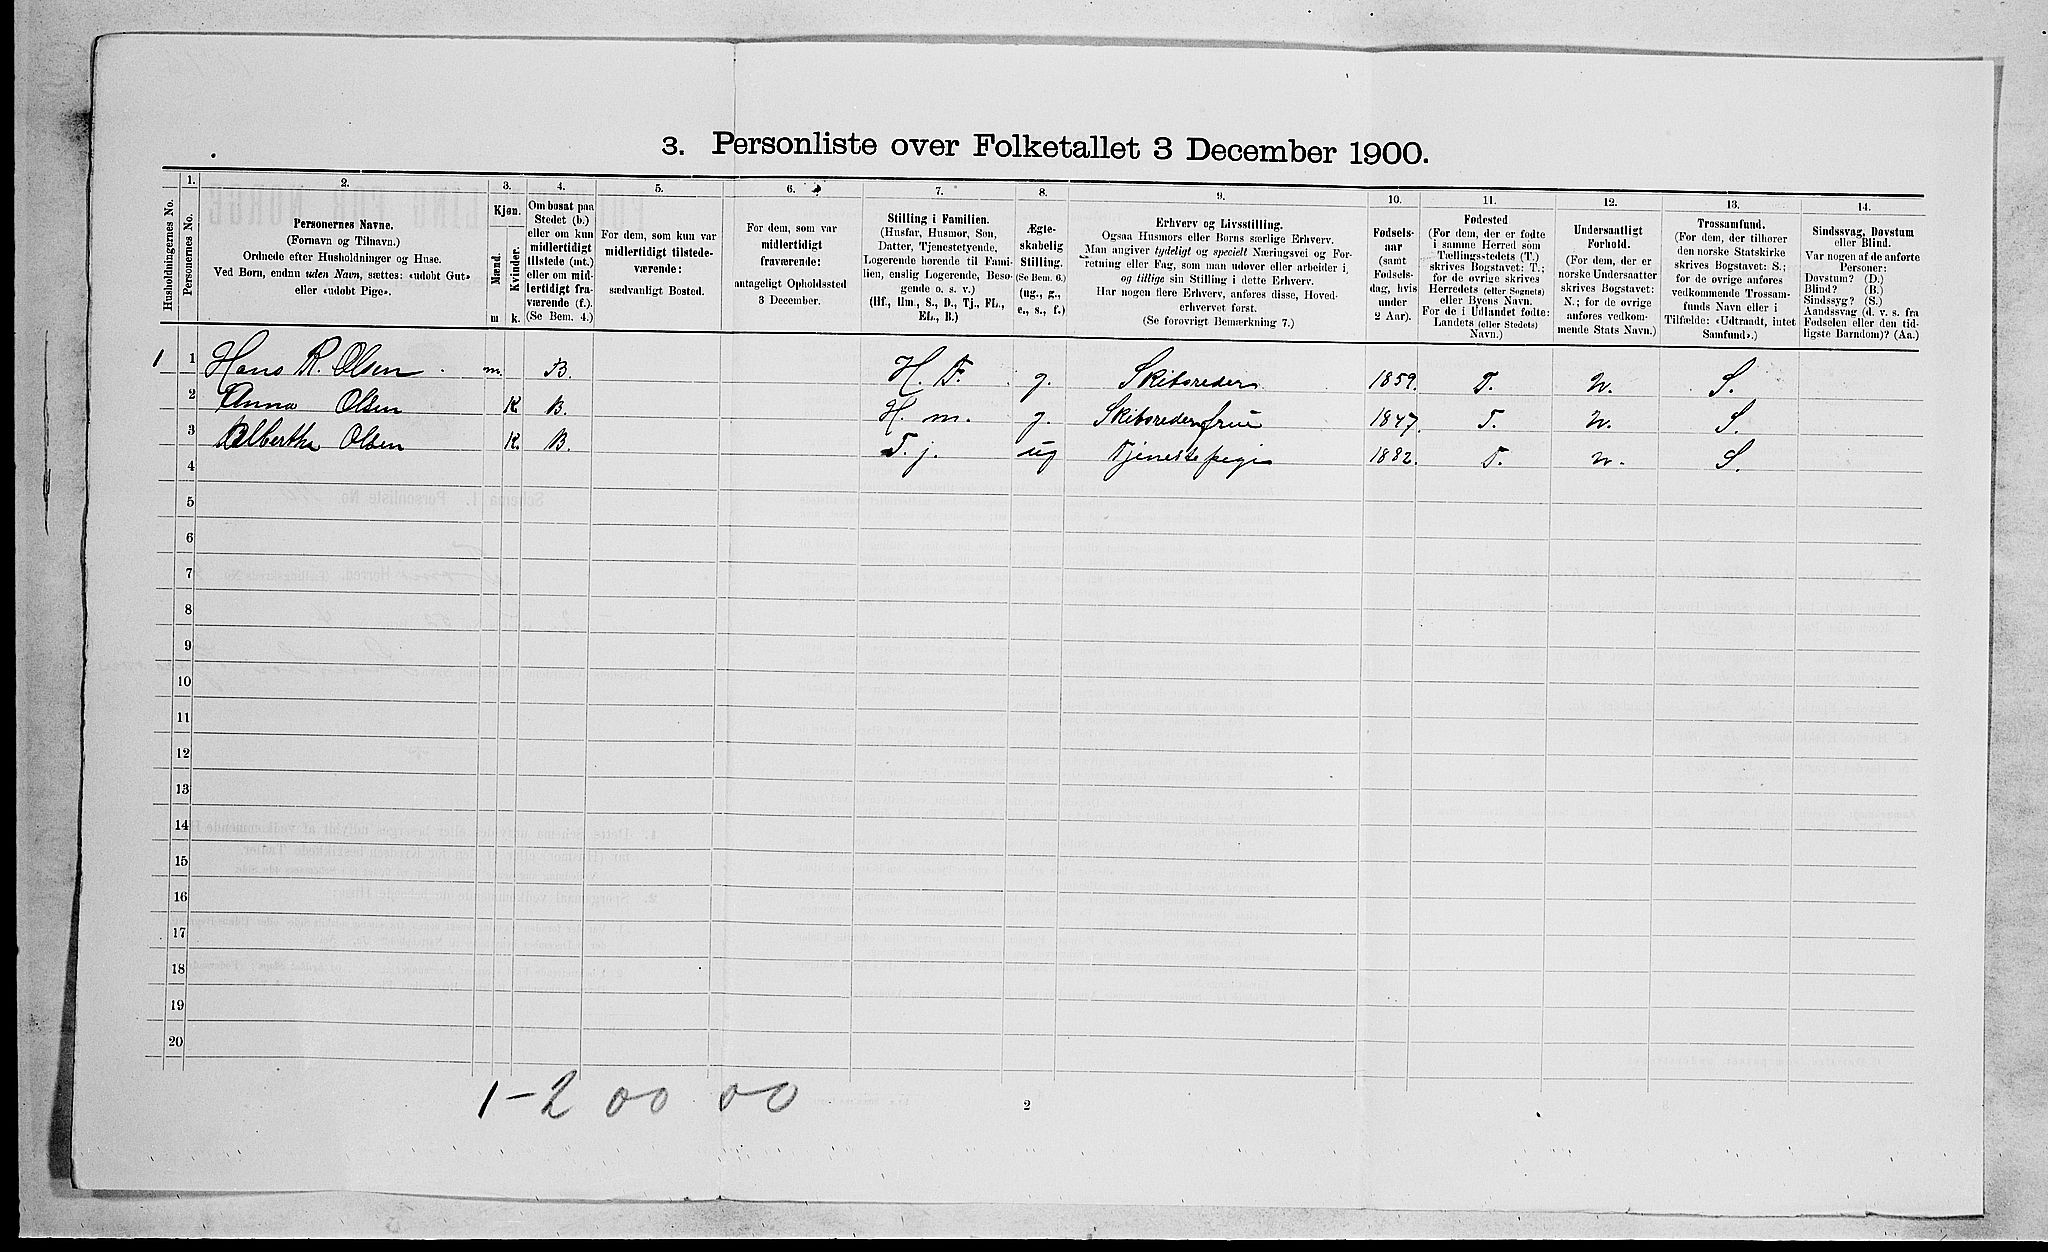 3. Personliste over Folketallet 3 December 1900.
1. 2. 3. 4. 5. 6. 7. 8. 9. 10. 11. 12. 13. 14.
Husholdningernes No.
Personernes No.
Personernes Navne.
(Fornavn og Tilnavn.)
Ordnede efter Husholdninger og Huse.
Ved Børn, endnu uden Navn, sættes: «udøbt Gut»
eller «udøbt Pige».
Kjøn.
Mænd.
Kvinder.
m k.
Om bosat paa
Stedet (b.)
eller om kun
midlertidigt
tilstede (mt.)
eller om mid-
lertidigt fra-
værende (f.).
(Se Bem. 4.)
For dem, som kun var
midlertidigt tilstede-
værende:
sædvanligt Bosted.
For dem, som var
midlertidigt
fraværende:
antageligt Opholdssted
3 December.
Stilling i Familien.
(Husfar, Husmor, Søn,
Datter, Tjenestetyende,
Logerende hørende til Fami-
lien, enslig Logerende, Besø-
gende o. s. v.)
(Hf., Hm., S., D., Tj., FL.,
EL., B.)
Ægte-
skabelig
Stilling.
(Se Bem. 6.)
(ug., g.,
e., s., f.)
Erhverv og Livsstilling.
Ogsaa Husmors eller Børns særlige Erhverv.
Man angiver tydeligt og specielt Næringsvei og For-
retning eller Fag, som man udøver eller arbeider i,
og tillige sin Stilling i dette Erhverv.
Har nogen flere Erhverv, anføres disse, Hoved-
erhvervet først.
(Se forøvrigt Bemærkning 7.)
Fødsels-
aar
(samt
Fødsels-
dag, hvis
under
2 Aar).
Fødested
(For dem, der er fødte
i samme Herred som
Tællingsstedets (T.)
skrives Bogstavet: T.;
for de øvrige skrives
Herredets (eller Sognets)
eller Byens Navn.
For de i Udlandet fødte:
Landets (eller Stedets)
Navn.)
Undersaatligt
Forhold.
(For dem, der er
norske Undersaatter
skrives Bogstavet:
N.; for de øvrige
anføres vedkom-
mende Stats Navn.)
Trossamfund.
(For dem, der tilhører
den norske Statskirke
skrives Bogstavet: S.;
for de øvrige anføres
vedkommende Trossam-
funds Navn eller i
Tilfælde: «Udtraadt, intet
Samfund».)
Sindssvag, Døvstum
eller Blind.
Var nogen af de anførte
Personer:
Døvstum? (D.)
Blind? (B.)
Sindssyg? (S.)
Aandssvag (d. v. s. fra
Fødselen eller den tid-
ligste Barndom)? (Aa.)
1 1 Hans R. Olsen m. B. H. F. g. Skibsreder 1859. T. N. S.
2 Anna Olsen K. B. H. m. g. Skibsrederfrue 1847. T. N. S.
3 Alberthe Olsen K. B. T. j. ug Tjenestepige 1882. T. N. S.
4
5
6
7
8
9
10
11
12
13
14
15
16
17
18
19
20
1-2 00 00
2